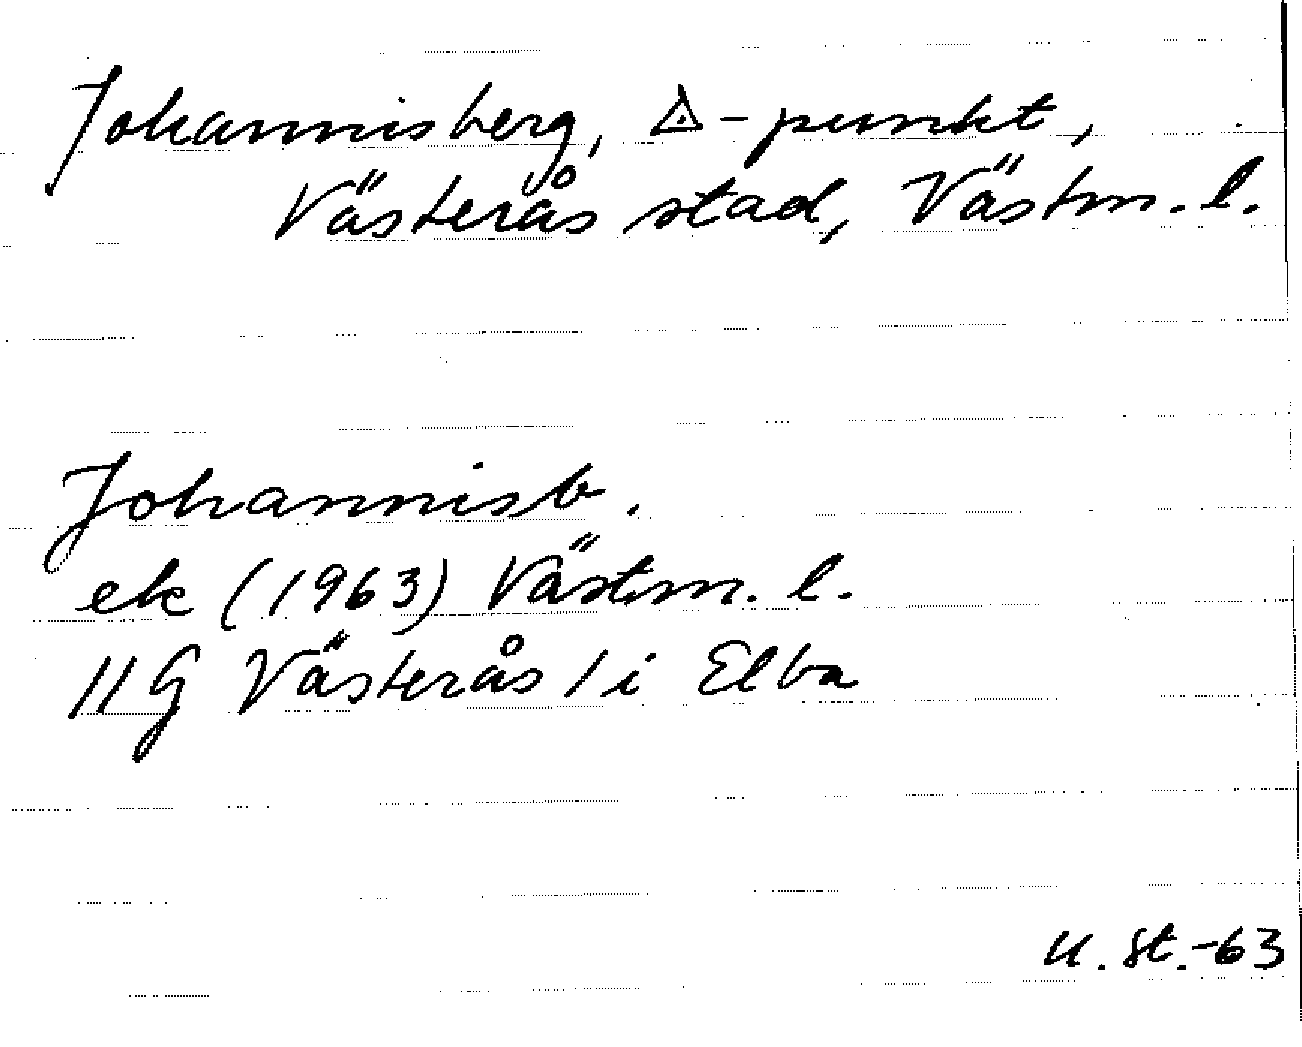 Johannisberg, △-punkt,
Västerås stad, Västm. l.
Johannisb.
ek (1963) Västm. l.
11G Västerås 1 i Elba
U. St.-63